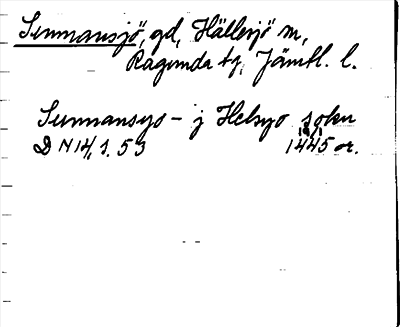 Sunnansjö, gd, Hällesjö sn,
Ragunda tg, Jämtl. l.
Sunnansyo - j Helsyo sokn
D N 14/1. 53 19/1 1445 or.